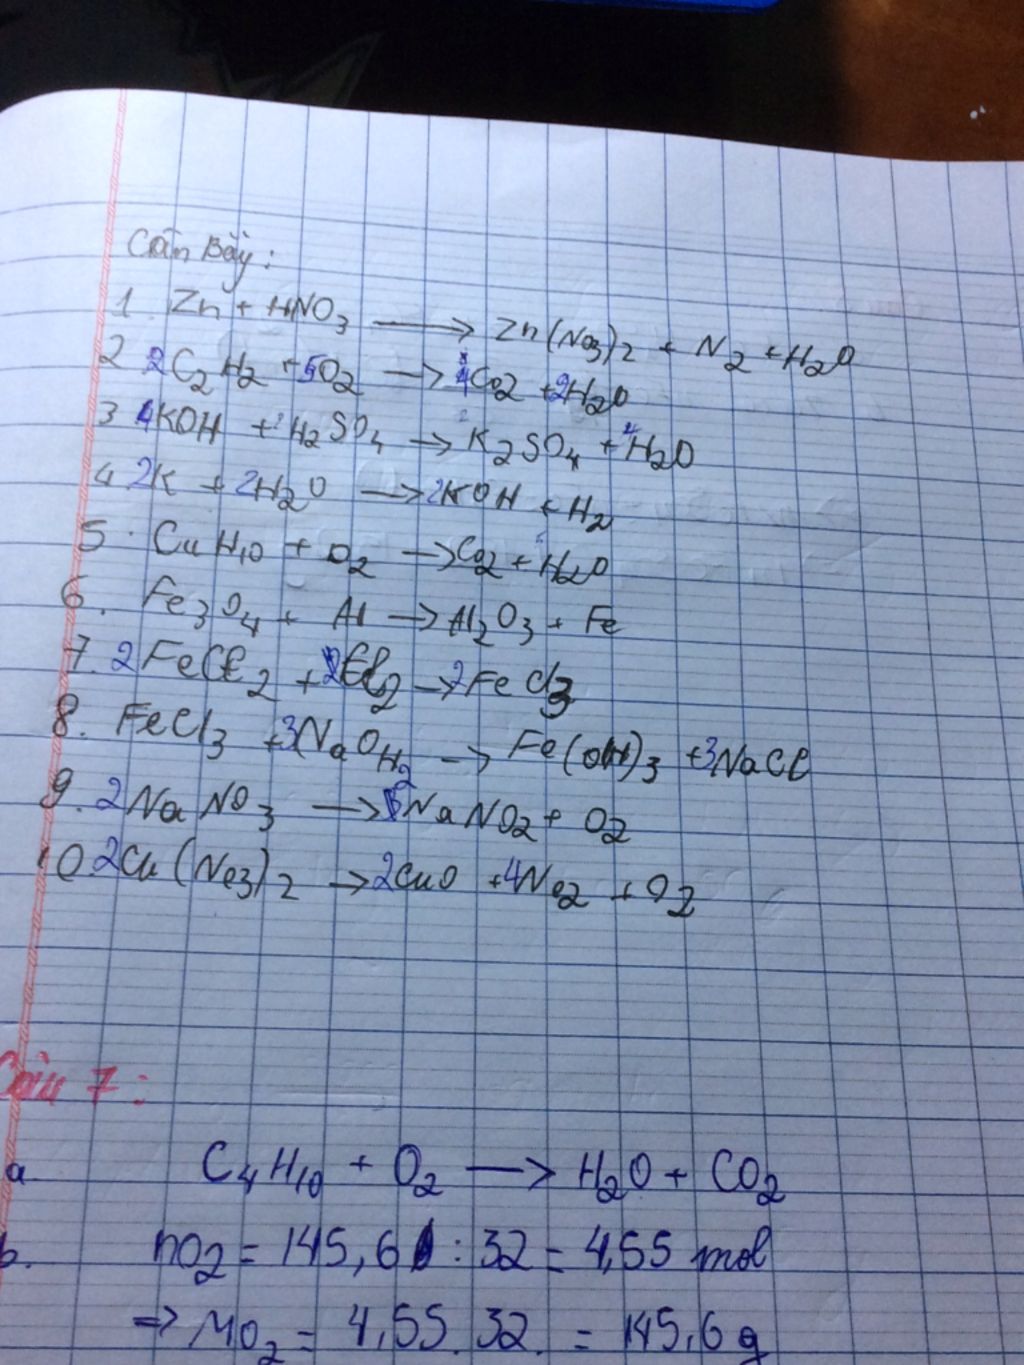 Cân Bằng:
1. Zn + HNO3 → Zn(NO3)2 + N2 + H2O
2 2C2H2 + 5O2 → 4CO2 + 2H2O
3 4KOH + 2H2SO4 → 2K2SO4 + 4H2O
4 2K + 2H2O → 2KOH + H2
5. C4H10 + O2 → CO2 + H2O
6. Fe3O4 + Al → Al2O3 + Fe
7. 2FeCl2 + Cl2 → 2FeCl3
8. FeCl3 + 3NaOH → Fe(OH)3 + 3NaCl
9. 2NaNO3 → NaNO2 + O2
10. 2Cu(NO3)2 → 2CuO + 4NO2 + O2
Câu 7:
a. C4H10 + O2 → H2O + CO2
b. nO2 = 145,6 : 32 = 4,55 mol
=> MO2 = 4,55 . 32 = 145,6 g